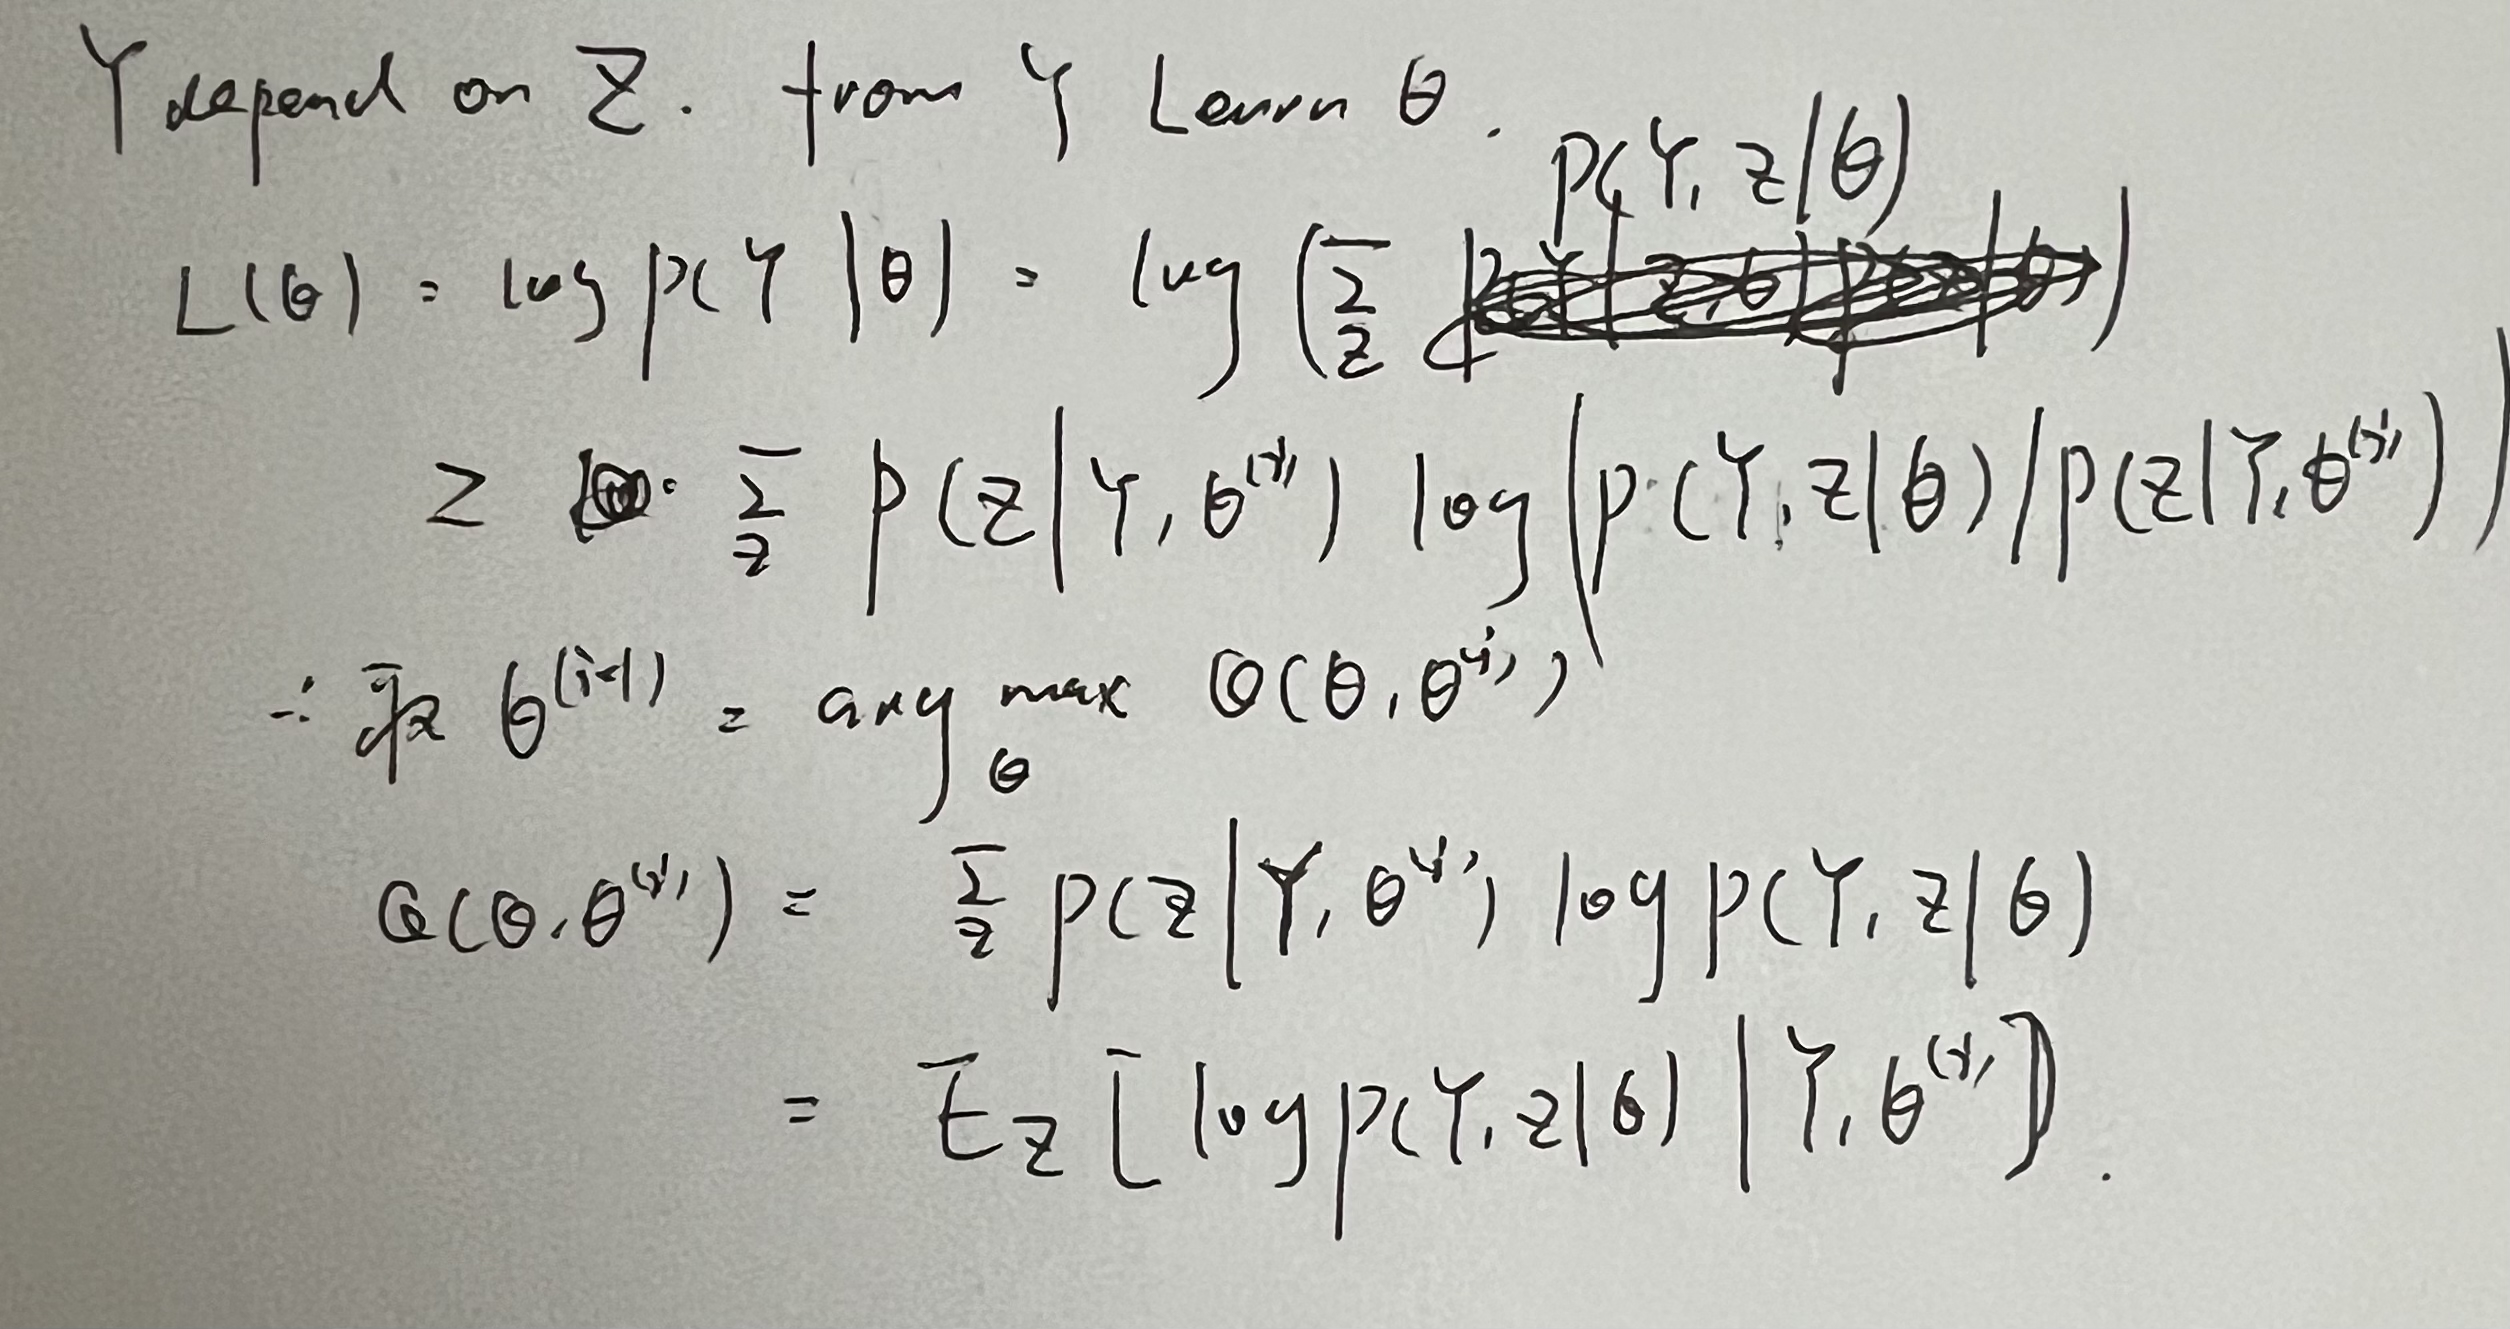 Y depend on Z. from Y Learn θ.
L(θ) = log p(Y|θ) = log (∑_z P(Y, z|θ))
≥ ∑_z P(z|Y, θ^(i)) log (P(Y, z|θ)/P(z|Y, θ^(i)))
∴ 取 θ^(i+1) = arg max_θ Q(θ, θ^(i))
Q(θ, θ^(i)) = ∑_z P(z|Y, θ^(i)) log P(Y, z|θ)
= E_z [log P(Y, z|θ) | Y, θ^(i)].